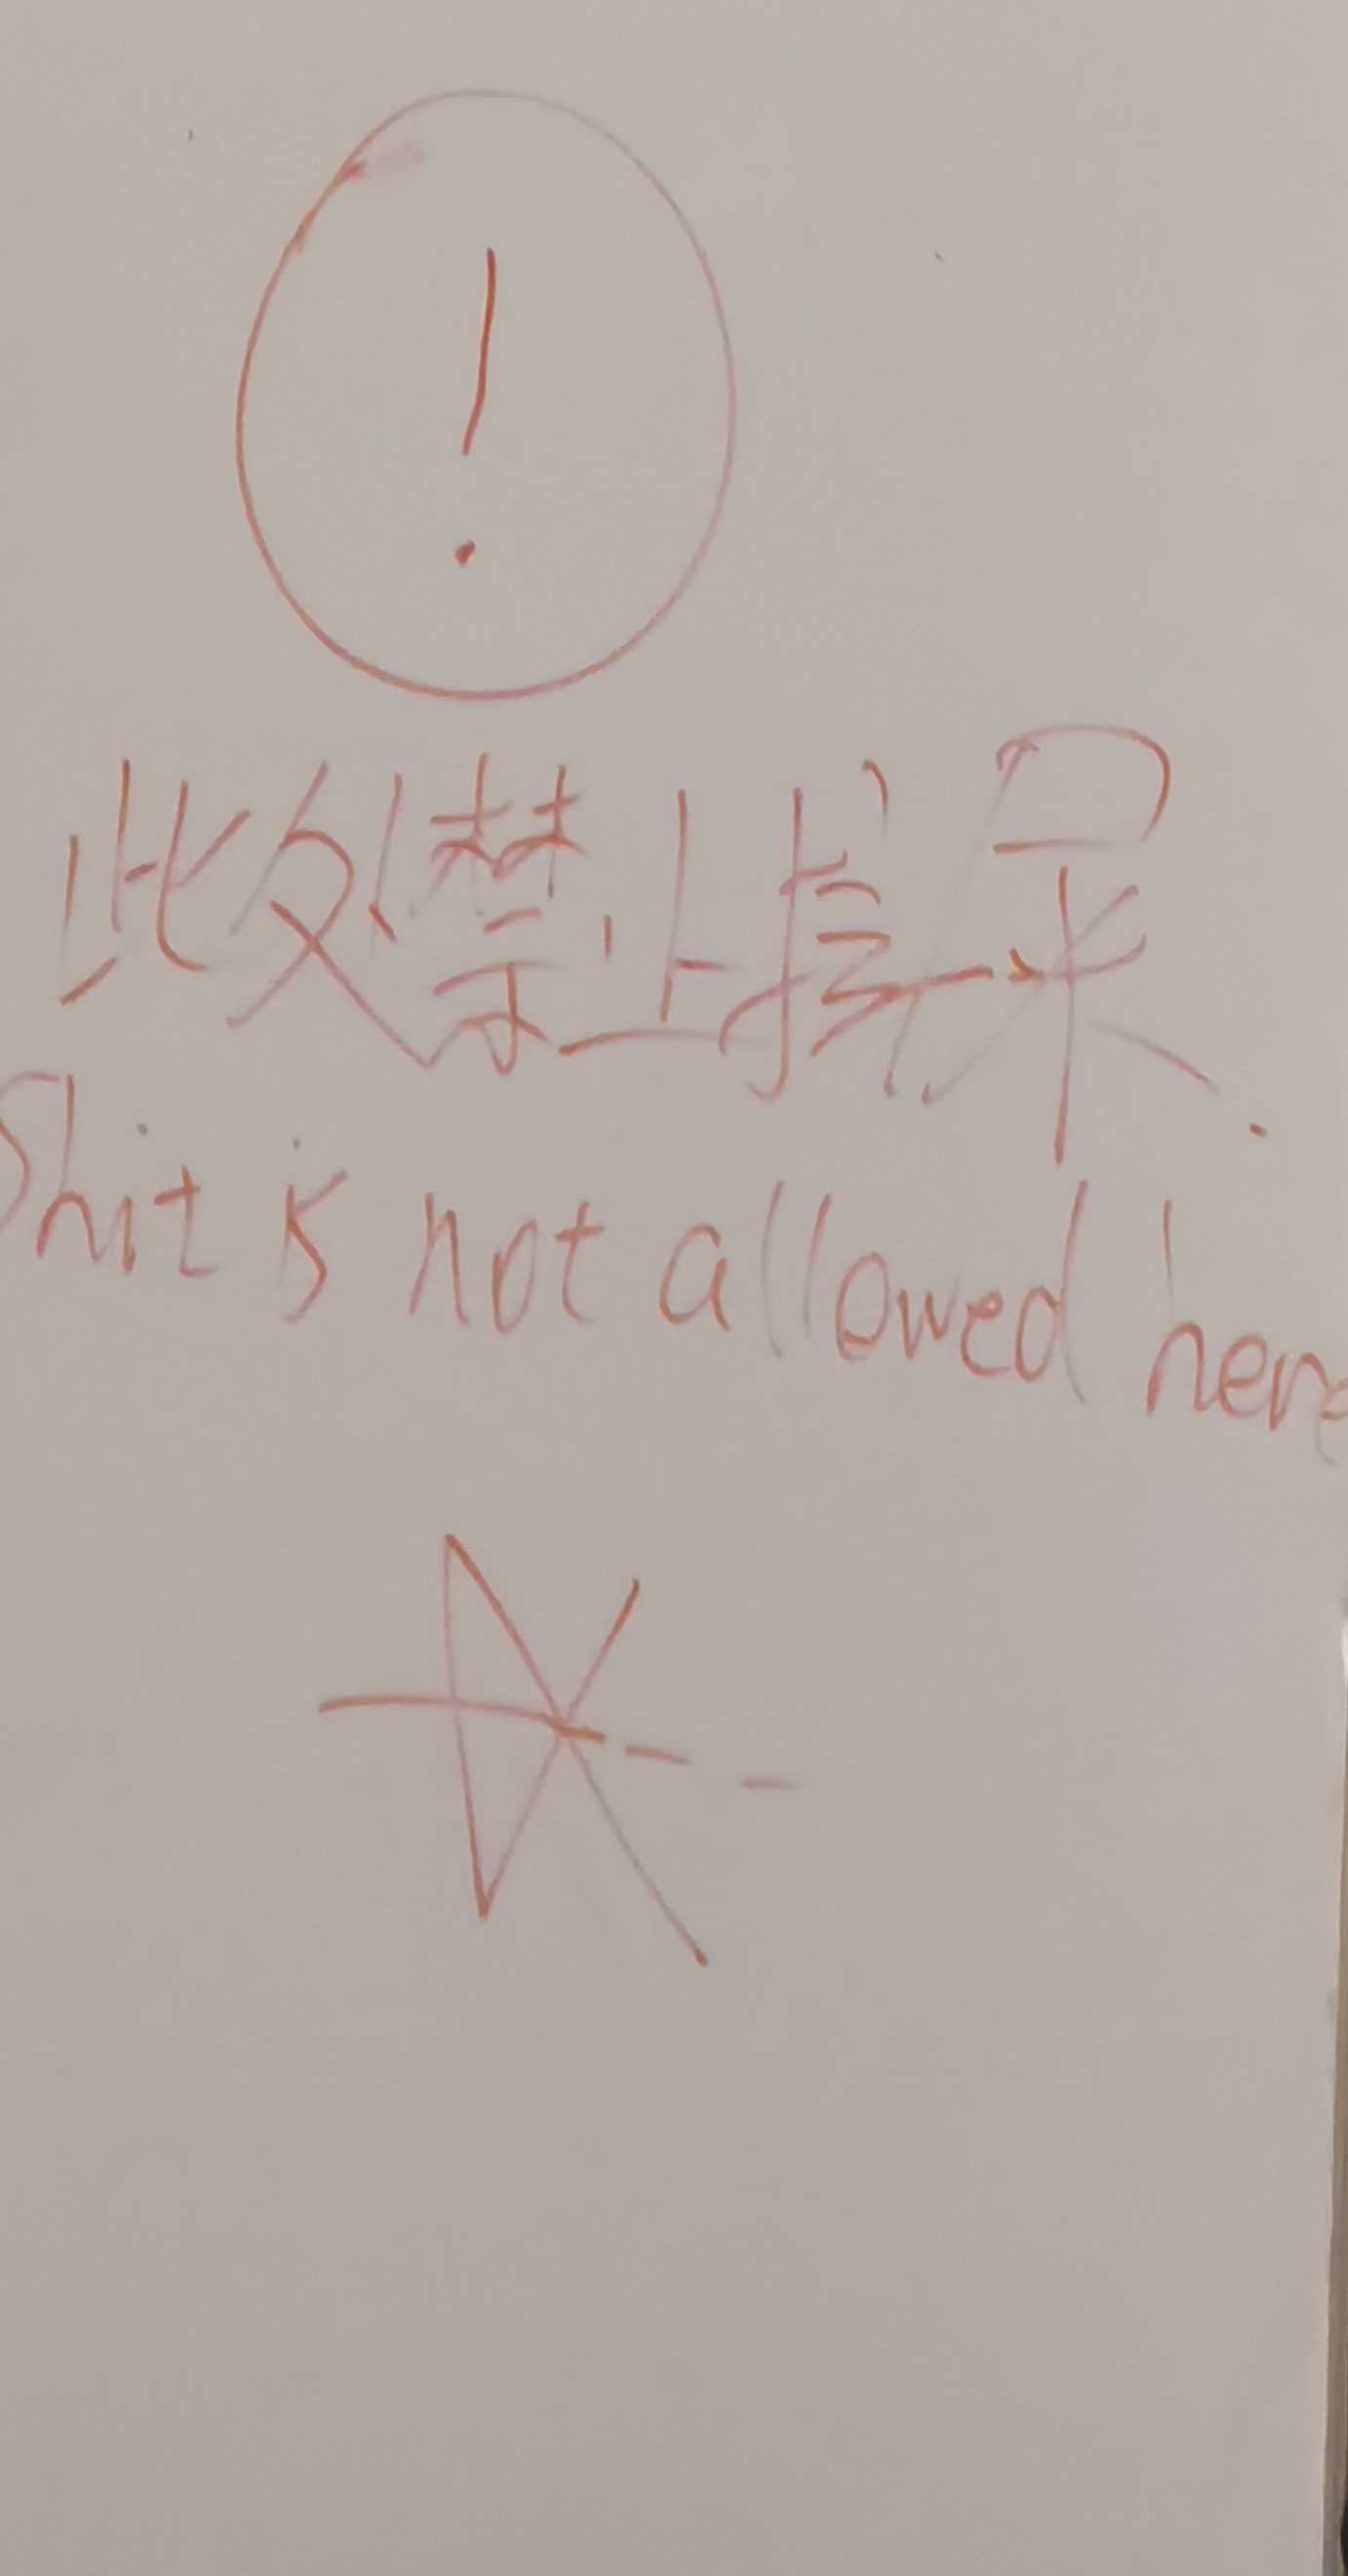 !
此处禁止拉屎.
Shit is not allowed here